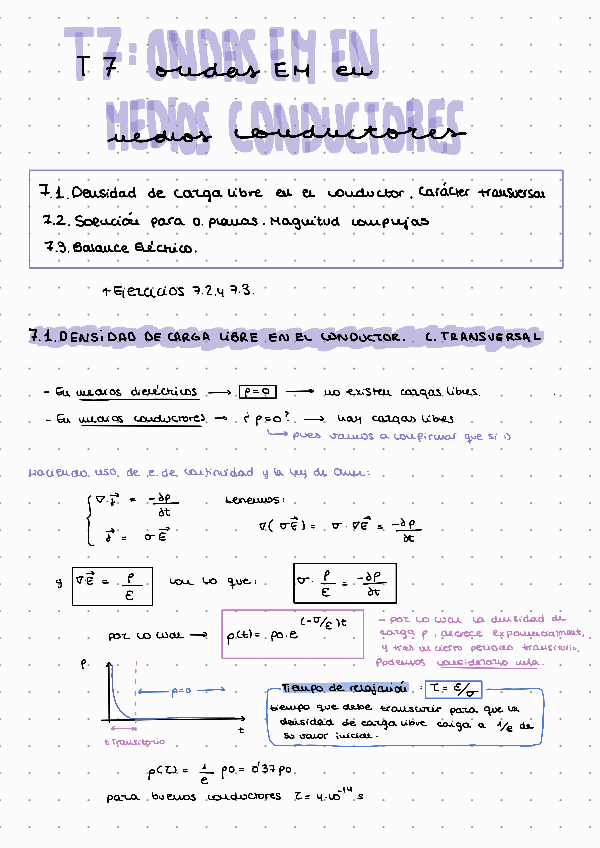 T7: ONDAS EM EN
T7 ondas EM en
MEDIOS CONDUCTORES
medios conductores
7.1. Densidad de carga libre en el conductor. Carácter transversal
7.2. Solución para o. planas. Magnitud complejas
7.3. Balance Eléctrico.
+ Ejercicios 7.2 y 7.3.
7.1. DENSIDAD DE CARGA LIBRE EN EL CONDUCTOR. C. TRANSVERSAL
- En medios dieléctricos → ρ=0 → no existen cargas libres.
- En medios conductores → ¿ρ=0? → hay cargas libres
↳ pues vamos a confirmar que sí :)
Haciendo uso de e. de continuidad y la ley de Ohm:
∇·j⃗ = -∂ρ/∂t tenemos:
j⃗ = σE⃗ ∇(σE⃗) = σ·∇E⃗ = -∂ρ/∂t
y ∇·E⃗ = ρ/ε con lo que: σ·ρ/ε = -∂ρ/∂t
por lo cual → ρ(t) = ρ0·e^(-σ/ε)t
- por lo cual la densidad de
carga ρ, decrece exponencialment,
y tras un cierto periodo transitorio,
podemos considerarlo nula.
ρ
ρ=0
t
t transitorio
Tiempo de relajación : τ = ε/σ
tiempo que debe transcurrir para que la
densidad de carga libre caiga a 1/e de
su valor inicial.
ρ(τ) = 1/e ρ0 = 0'37ρ0.
para buenos conductores τ = 4·10^-14 s